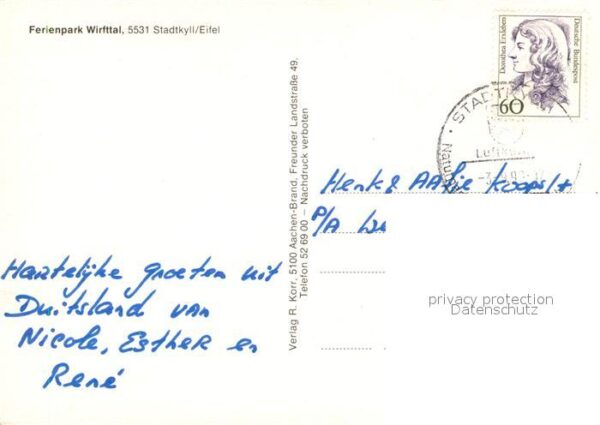 Ferienpark Wirfttal, 5531 Stadtkyll/Eifel
Hartelijke groeten uit
Duitsland van
Nicole, Esther en
René
Verlag R. Korr, 5100 Aachen-Brand, Freunder Landstraße 49,
Telefon 52 69 00 – Nachdruck verboten
Dorothea Erxleben
Deutsche Bundespost
60
STADTK
Henk & AAlie
P/A
privacy protection
Datenschutz